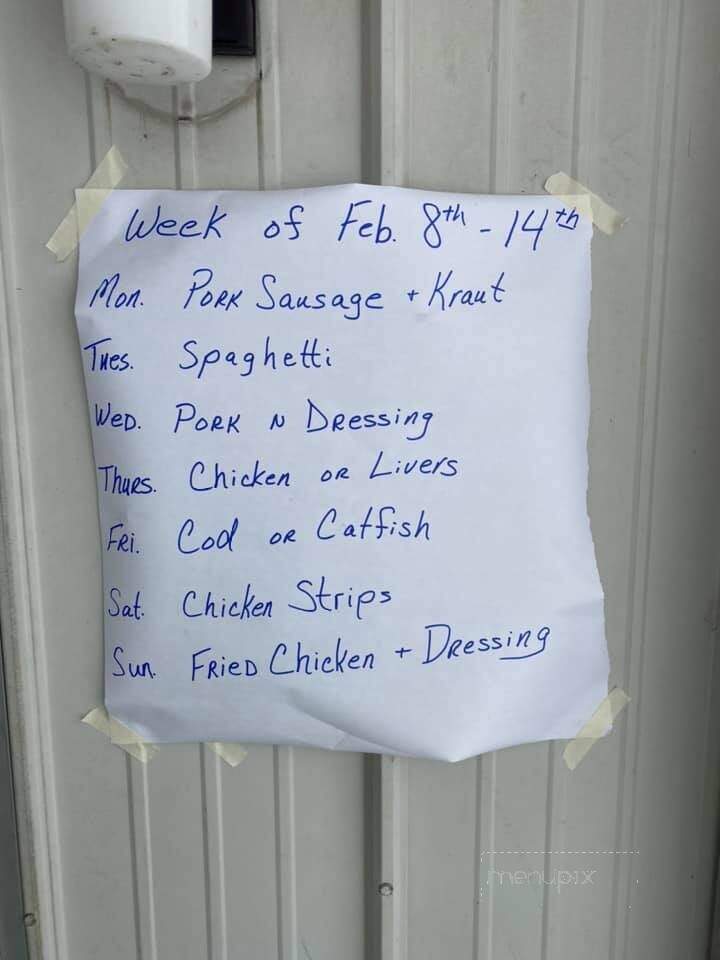 Week of Feb. 8th - 14th
Mon. Pork Sausage + Kraut
Tues. Spaghetti
Wed. Pork N Dressing
Thurs. Chicken or Livers
Fri. Cod or Catfish
Sat. Chicken Strips
Sun. Fried Chicken + Dressing
menupix